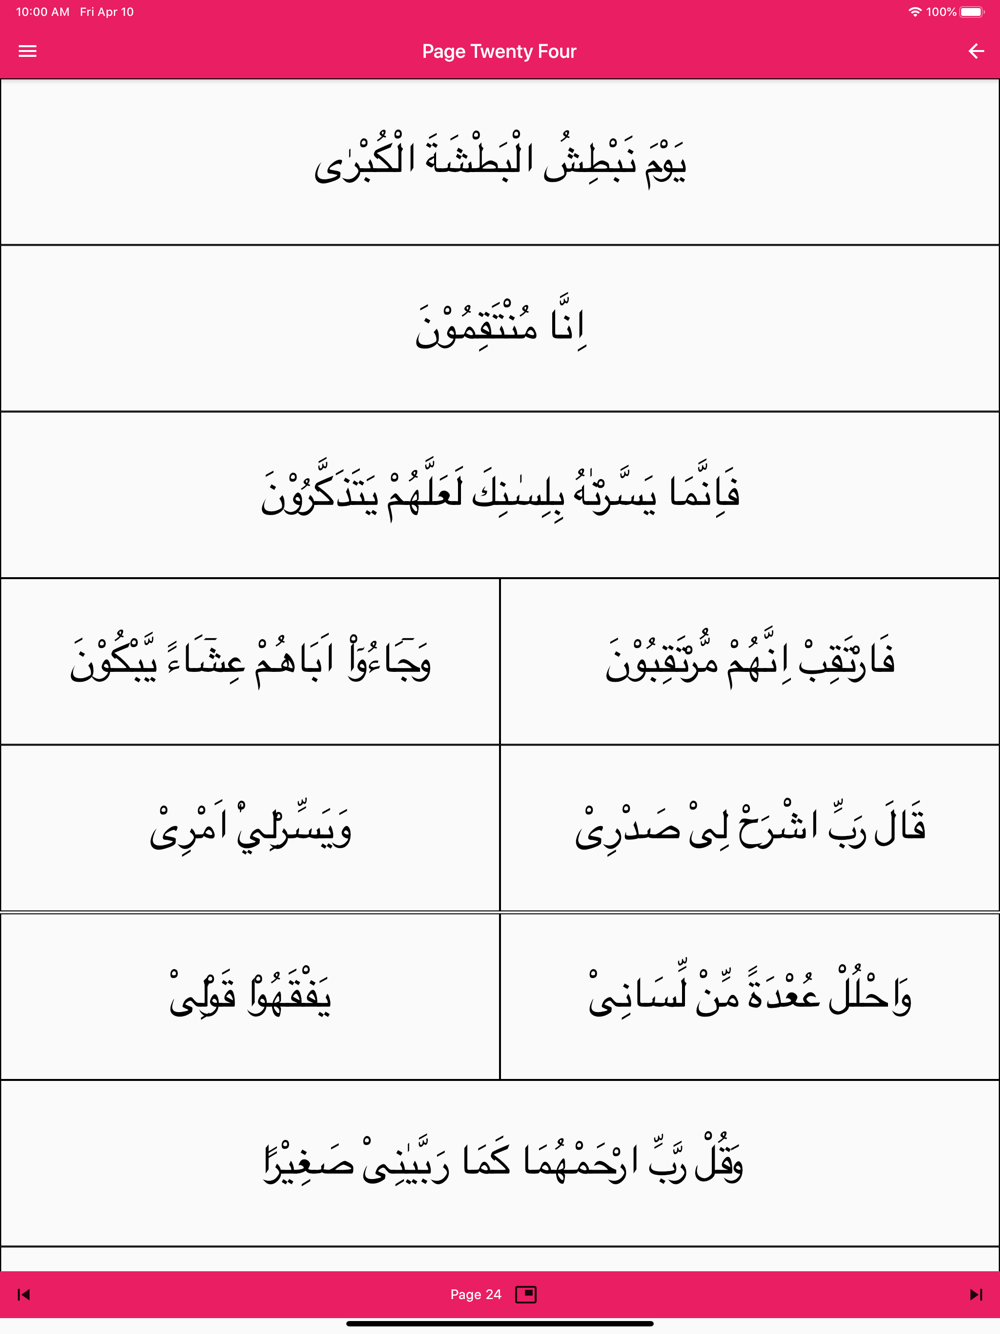 10:00 AM Fri Apr 10 100%
Page Twenty Four
يَوْمَ نَبْطِشُ الْبَطْشَةَ الْكُبْرٰى
اِنَّا مُنْتَقِمُوْنَ
فَاِنَّمَا يَسَّرْنٰهُ بِلِسٰنِكَ لَعَلَّهُمْ يَتَذَكَّرُوْنَ
فَارْتَقِبْ اِنَّهُمْ مُّرْتَقِبُوْنَ
وَجَآءُوْاَ اَبَاهُمْ عِشَآءً يَّبْكُوْنَ
قَالَ رَبِّ اشْرَحْ لِىْ صَدْرِىْ
وَيَسِّرْلِيْ اَمْرِىْ
وَاحْلُلْ عُعْدَةً مِّنْ لِّسَانِىْ
يَفْقَهُوْا قَوْلِىْ
وَقُلْ رَّبِّ ارْحَمْهُمَا كَمَا رَبَّيٰنِىْ صَغِيْرًا
Page 24